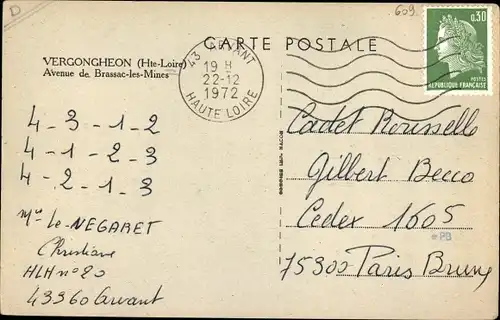 D
609
CARTE POSTALE
VERGONGHEON (Hte-Loire)
Avenue de Brassac-les-Mines
43 ARVANT
19 H
22-12
1972
HAUTE LOIRE
0,30
POSTES
REPUBLIQUE FRANÇAISE
4-3-1-2
4-1-2-3
4-2-1-3
Le-NEGARET
Christiane
HLM n° 20
43360 Arvant
Cadet Rousselle
Gilbert Beco
Cedex 1605
75300 Paris Brune
PB